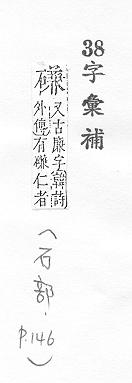 38字彙補
磏又古廉字韓詩
外傳有磏仁者
(石部.
p.146)